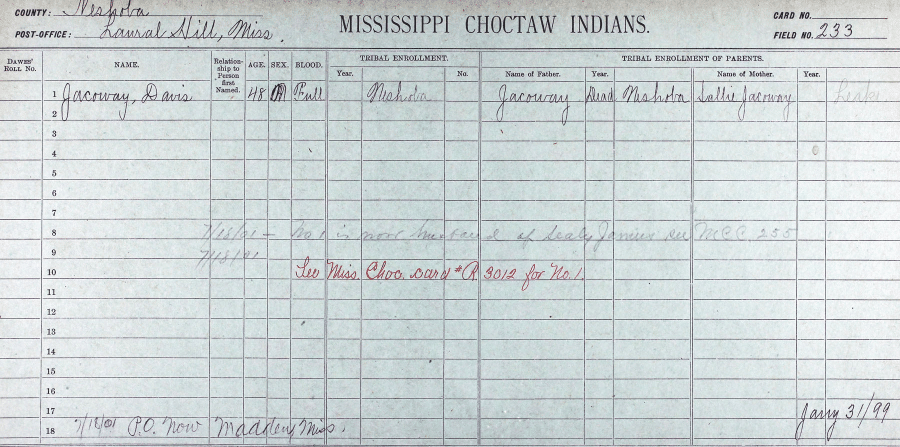 COUNTY: Neshoba
POST-OFFICE: Laural Hill, Miss.
MISSISSIPPI CHOCTAW INDIANS.
CARD NO.
FIELD NO. 233
DAWES' ROLL No. NAME. Relationship to Person first Named. AGE. SEX. BLOOD. TRIBAL ENROLLMENT. TRIBAL ENROLLMENT OF PARENTS.
Year. No. Name of Father. Year. Name of Mother. Year.
1 Jacoway, Davis 48 M Full Neshoba Jacoway Dead Neshoba Sallie Jacoway Leake
2
3
4
5
6
7
8 7/18/01 - No 1 is now husband of Sealy Jimius see M C C 255
9 7/18/01
10 See Miss. Choc. card #R 3012 for No. 1.
11
12
13
14
15
16
17 Jany 31/99
18 7/18/01 P.O. Now Madden, Miss.